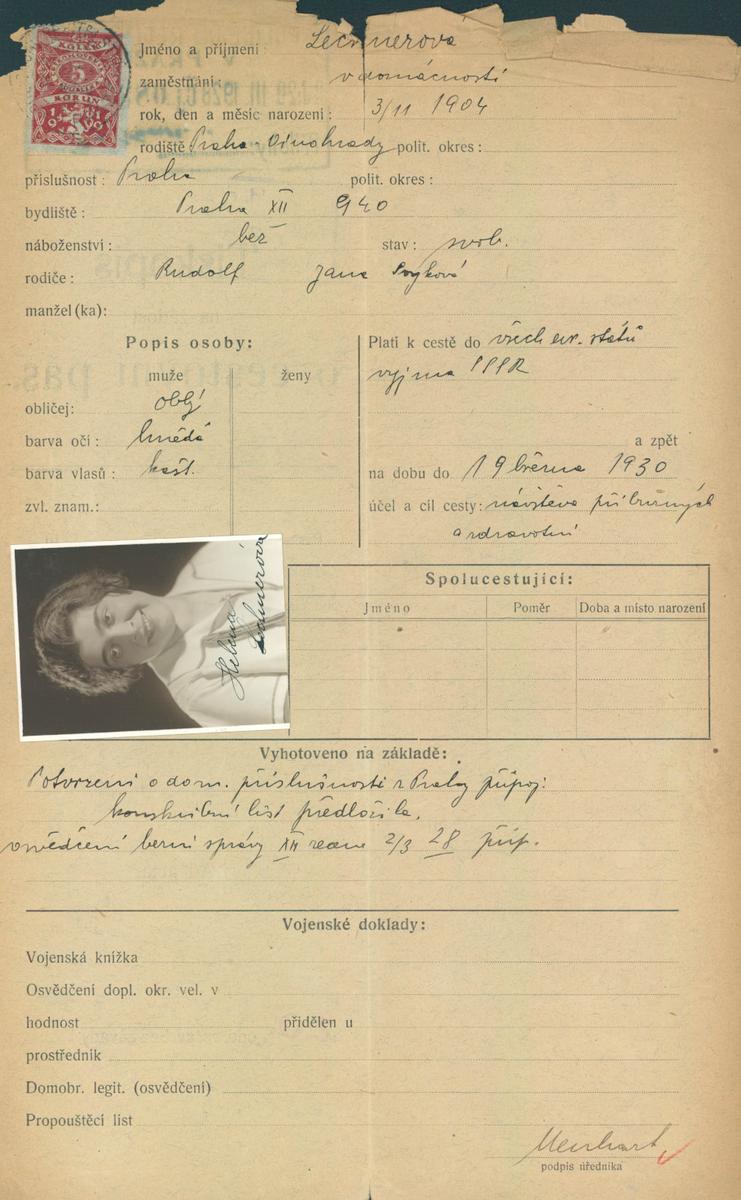 KOLEK
5
KORUN
Jméno a příjmení: Lechnerová
zaměstnání: v domácnosti
rok, den a měsíc narození: 3/11 1904
rodiště Praha-Vinohrady polit. okres:
příslušnost: Praha polit. okres:
bydliště: Praha XII 940
náboženství: bez stav: svob.
rodiče: Rudolf Jana
manžel(ka):
Popis osoby:
muže ženy
obličej: oblý
barva očí: hnědá
barva vlasů: kašt.
zvl. znam.:
Platí k cestě do všech evr. států
vyjma SSSR
a zpět
na dobu do 19 března 1930
účel a cíl cesty: návštěva příbuzných
a zdravotní
Helena
Lechnerová
Spolucestující:
Jméno Poměr Doba a místo narození
Vyhotoveno na základě:
Potvrzení o dom. příslušnosti z Prahy připoj.
konskribční list předložila.
osvědčení berní správy XII ze dne 2/3 28 přip.
Vojenské doklady:
Vojenská knížka
Osvědčení dopl. okr. vel. v
hodnost přidělen u
prostředník
Domobr. legit. (osvědčení)
Propouštěcí list
podpis úředníka